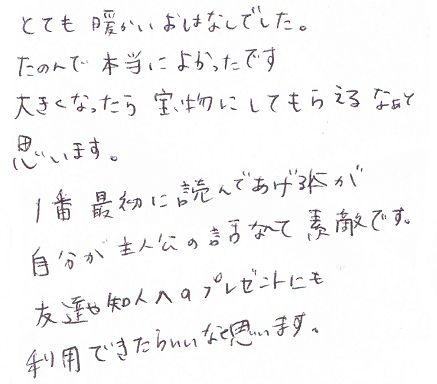 とても暖かいおはなしでした。
たのんで本当によかったです
大きくなったら宝物にしてもらえるなぁと
思います。
1番最初に読んであげる本が
自分が主人公の話なんて素敵です。
友達や知人へのプレゼントにも
利用できたらいいなと思います。